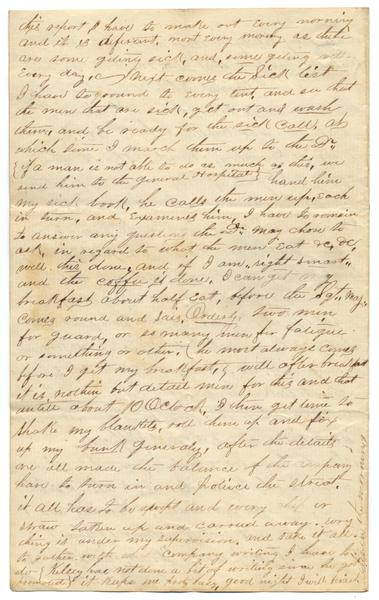 this report, I have to make out every morning
and it is different, most every morning as their
are some geting sick, and, some geting
every day, Next comes the Sick list
I have to round to every tent, and see that
the men that are sick, get out and wash
them, and be ready for the sick call, at
which time I march them up to the Dr,
(if a man is not able to do as much as this, we
send him to the General Hospital) hand him
my sick book, he calls the men up, each
in turn, and Examines him, I have to remain
to answer any questions the Dr, may chose to
ask, in regard to what the men eat &c, &c,
well this done, and if I am "right smart"
and the coffee is done, I can get my
breakfast, about half eat, before the Sgt, Maj-
comes round and sais, Orderly two men
for guard, or so many men for fatigue
or something or other, (he most always comes
before I get my breakfast,) well after breakfast
it is nothin but detail men for this and that
untill about 10 OClock, I then get time to
shake my blankets, roll them up and fix
up my bunk generaly, after the details
are all made the balance of the company
have to turn in and police the street,
it all has to be swept and every or
straw taken up and carried away. every
thing is under my supervision, and take it all-
to gather with company writing I have to
do (Kelsey has not done a bit of writing since he was
promoted) it keeps me busy, good night I will finish